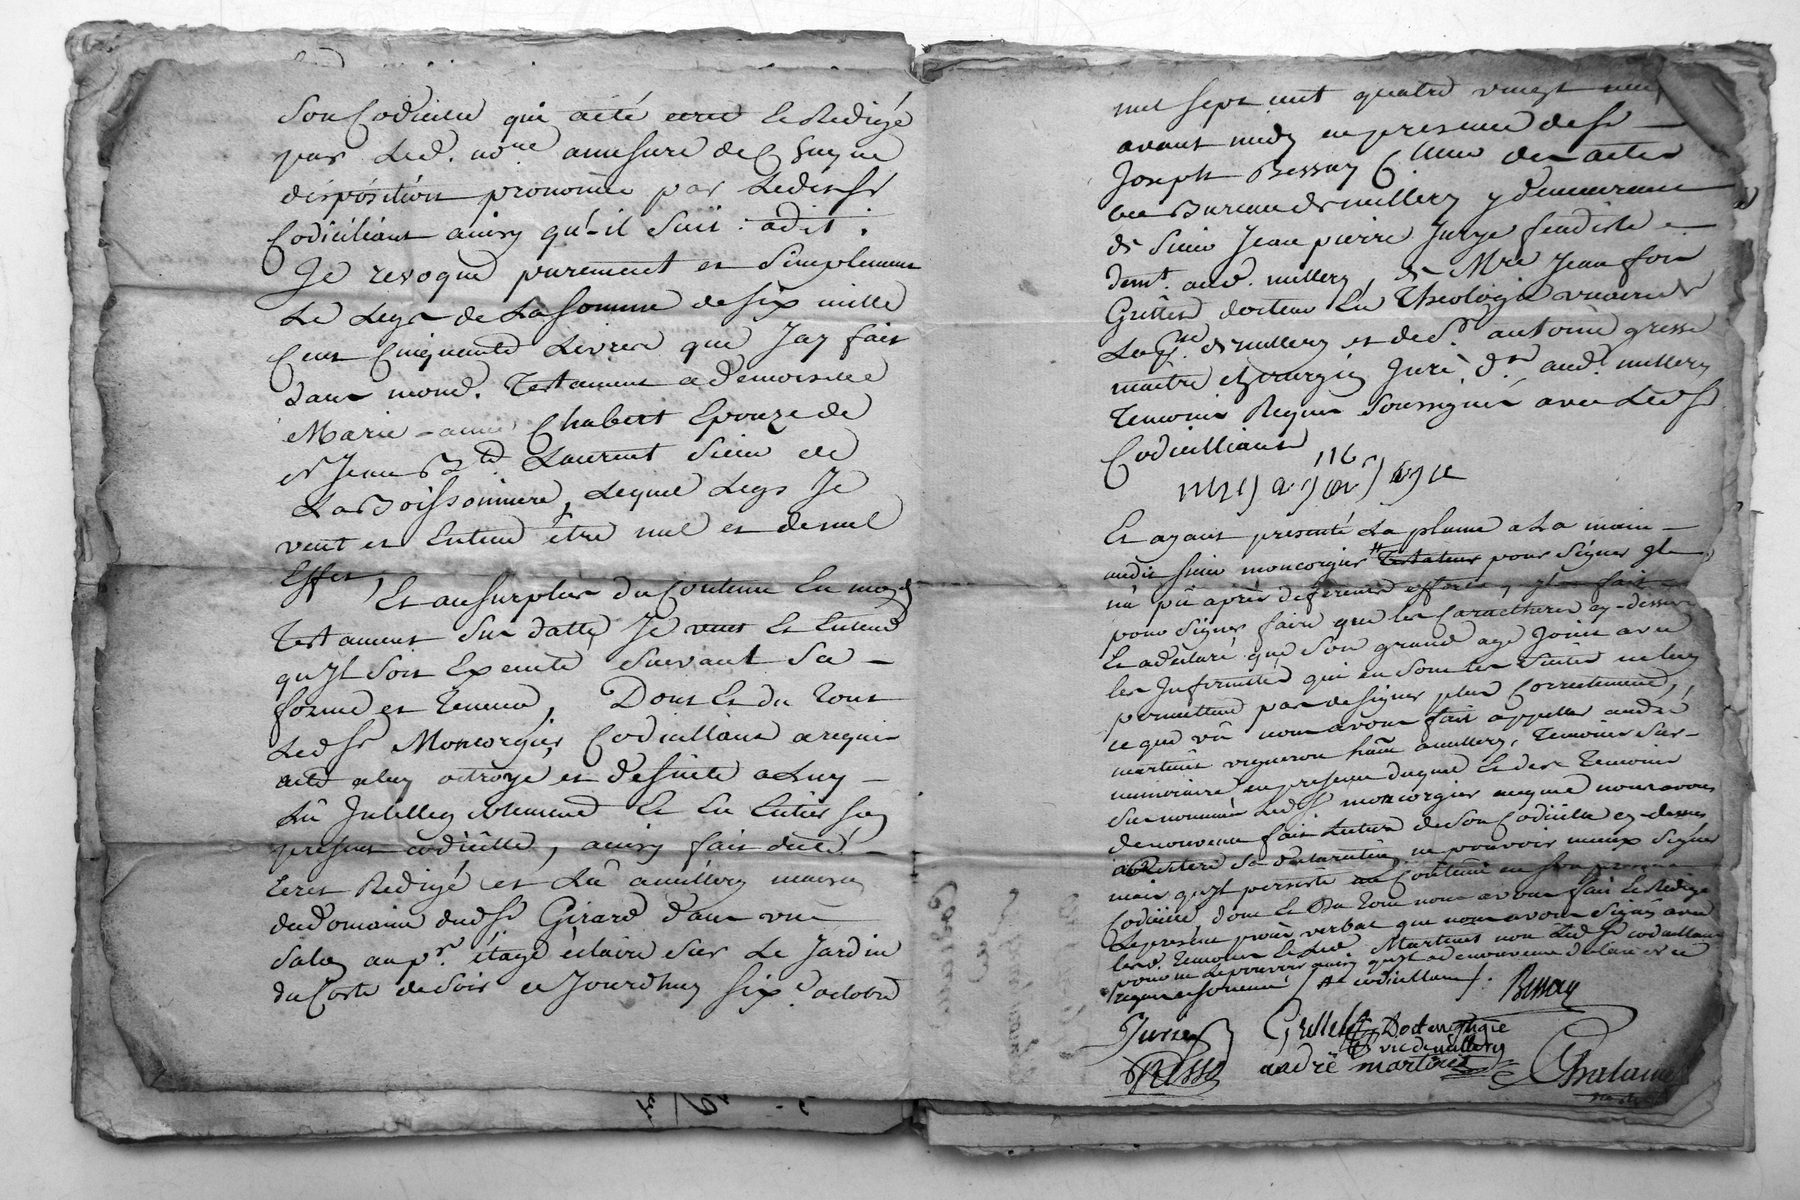 Son Codicille qui a été ecrit Et Redigé
par Led. no.re amesure de Chaque
disposition prononcée par Ledit Sr
Codicillant ainsy qu'il suit : adit :
Je revoque purement et Simplement
Le Legs de La Somme de Six mille
Cent Cinquante Livres que Jay fait
dans mond. Testament a demoiselle
Marie-anne Chabert Epouze de
Sr Jean B.te Laurent Sieur de
La Boissonniere, Lequel Legs Je
veut et Entend être nul et de nul
Effet,
Et au Surplus du Contenu En mond
Testament Sus datté Je veut Et Entend
qu'Jl Soit Executé Suivant Sa -
forme et teneur, Dont Et du tout
Led Sr Moncorgier Codicillant a requis
acte a luy octroyé et d'esuitte a Luy -
Lû Jntelligiblement Et En Entier Son
present codicille, ainsy fait dicté -
Ecrit Redigé et Lû a millery maison
du domaine dud Sr Girard dans une
Salle au pr. étage éclairé Sur Le Jardin
du Coté de Soir ce Jourd'huy Six octobre
mil sept cent quatre vingt
avant midy en presence de Sr -
Joseph Bessay C des actes
au Bureau de millery y demeurant
de Sieur Jean pierre Jurye feudiste
demt. aud. millery, de Mre Jean
docteur En Theologie vicaire de
La de millery et de Sr. antoine gresse
maitre chirurgien Juré dt aud. millery
temoins Requis Soussignés avec Led Sr
Codicilliant
Et ayant presenté La plume a La main -
audit Sieur moncorgier Testateur pour Signer Jl
na pû après differends efforts, Jl a fait
pour Signer faire que les Caractheres cy-dessus
Et a déclaré que Son grand age Joint avec
les Jnfirmités qui en Sont les Suites ne luy
permettent pas de Signer plus Correctement,
ce que vû nous avons fait appeller andré
martinet vigneron a millery, temoins Sur-
numeraire en presence duquel Et des temoins
Sus nommés Led Sr moncorgier auquel nous avons
de nouveau fait Lecture de Son Codicille cy-dessus
a Reiteré Sa declaration ne pouvoir mieux Signer
mais qu'Jl persiste au Contenu en Son present
Codicille, dont Et Du tout nous avons fait Et Redigé
Le present procès verbal que nous avons Signé avec
Lesd. temoins Et Led. Martinet non Led Sr codicillant
pour ne Le pouvoir ainsy qu'Jl a de nouveau declaré de ce
requis et sommé / # codicillant /.
Bessay
Jurye
andré martinet